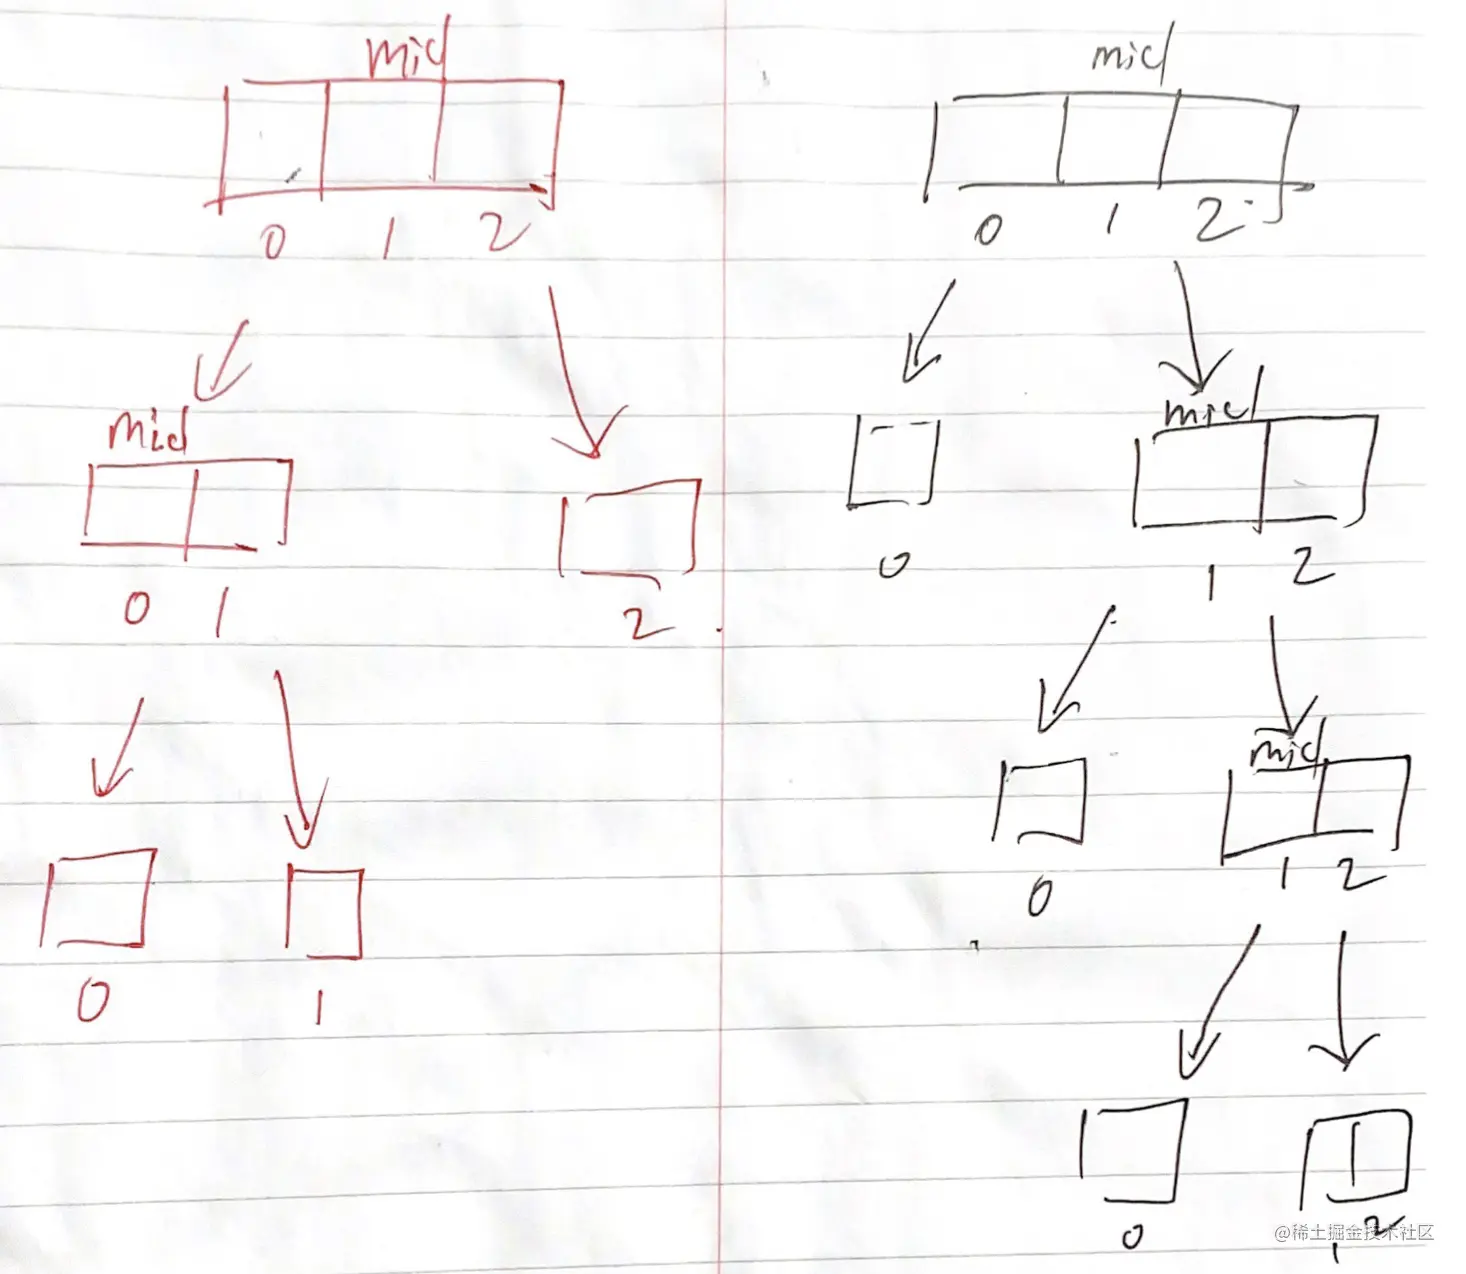 mid
0 1 2
mid
0 1
2
0
1
mid
0 1 2
0
mid
1 2
0
mid
1 2
0
1 2
@稀土掘金技术社区